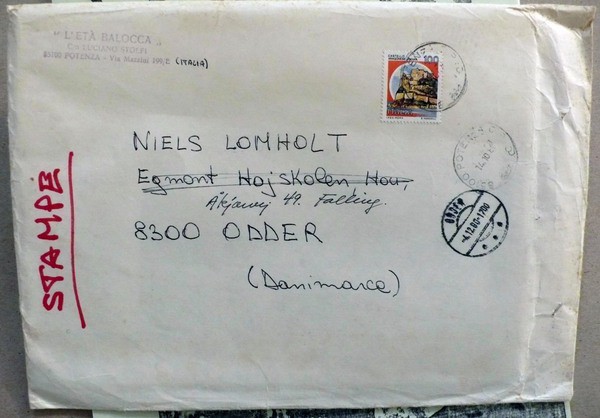 "L'ETÀ BALOCCA"
C/o LUCIANO STOLFI
85100 POTENZA - Via Mazzini 109/E (ITALIA)
100
NIELS LOMHOLT
Egmont Højskolen Hou,
Åkjærvej 49. Falling.
8300 ODDER
(Danimarca)
STAMPÉ
ODDER
-4.12.80-1700